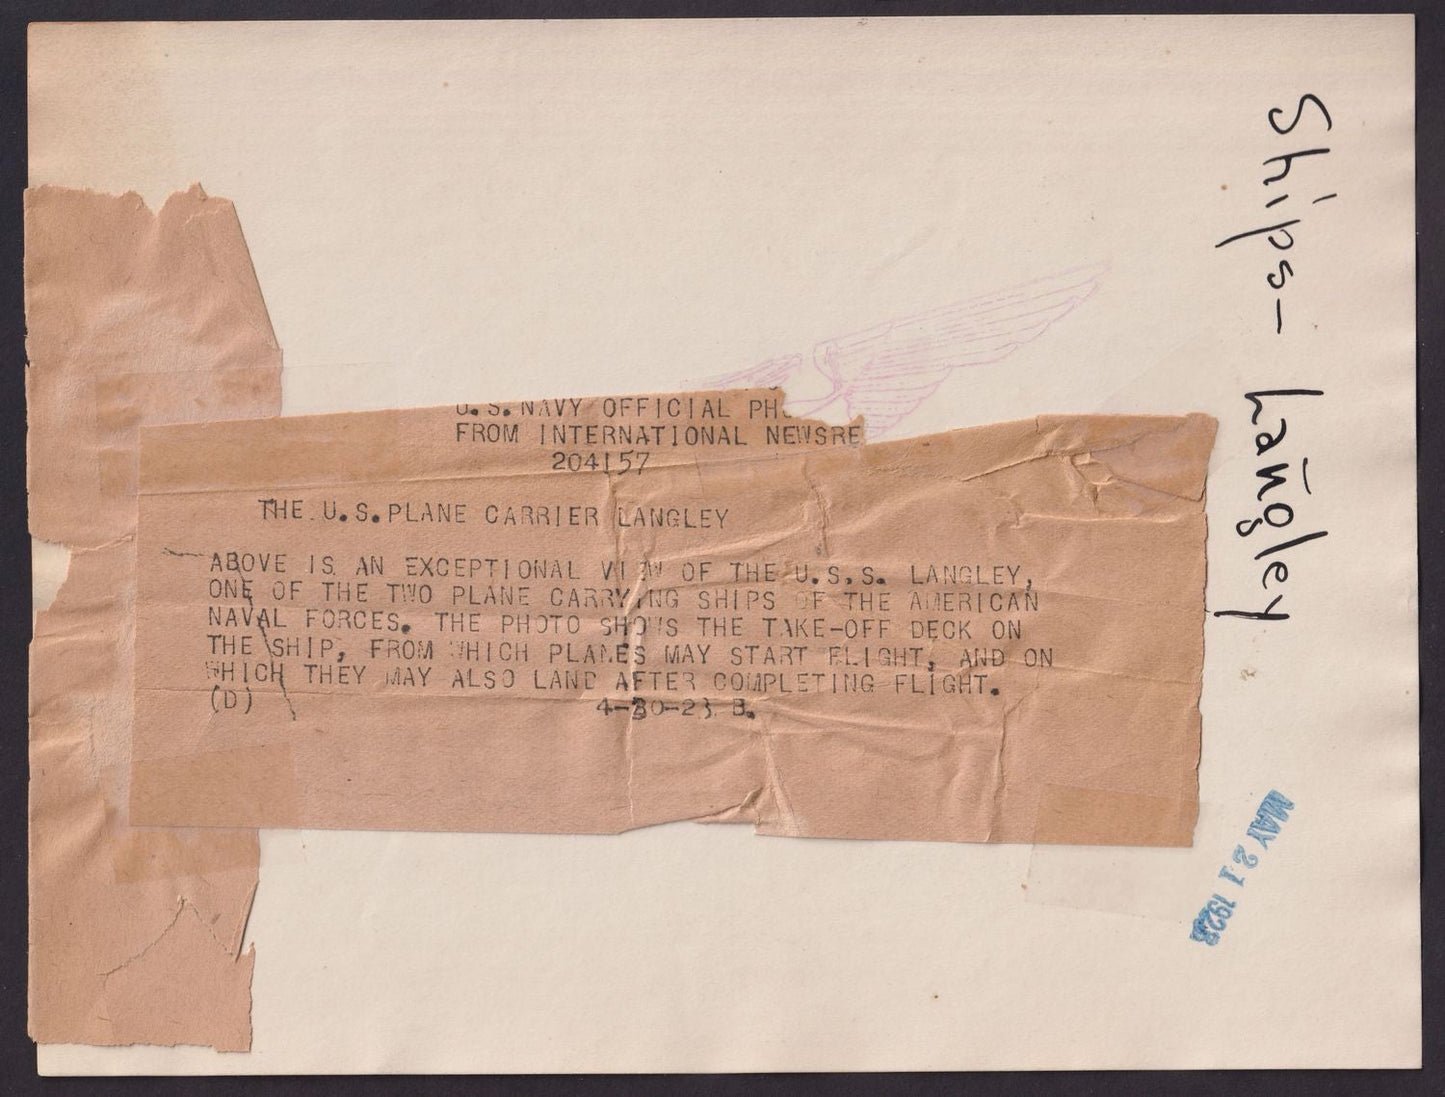 U.S.NAVY OFFICIAL PH
FROM INTERNATIONAL NEWSRE
204157
THE U.S.PLANE CARRIER LANGLEY
ABOVE IS AN EXCEPTIONAL VIEW OF THE U.S.S. LANGLEY,
ONE OF THE TWO PLANE CARRYING SHIPS OF THE AMERICAN
NAVAL FORCES. THE PHOTO SHOWS THE TAKE-OFF DECK ON
THE SHIP, FROM WHICH PLANES MAY START FLIGHT, AND ON
WHICH THEY MAY ALSO LAND AFTER COMPLETING FLIGHT.
(D) 4-30-23 B.
Ships- Langley
MAY 21